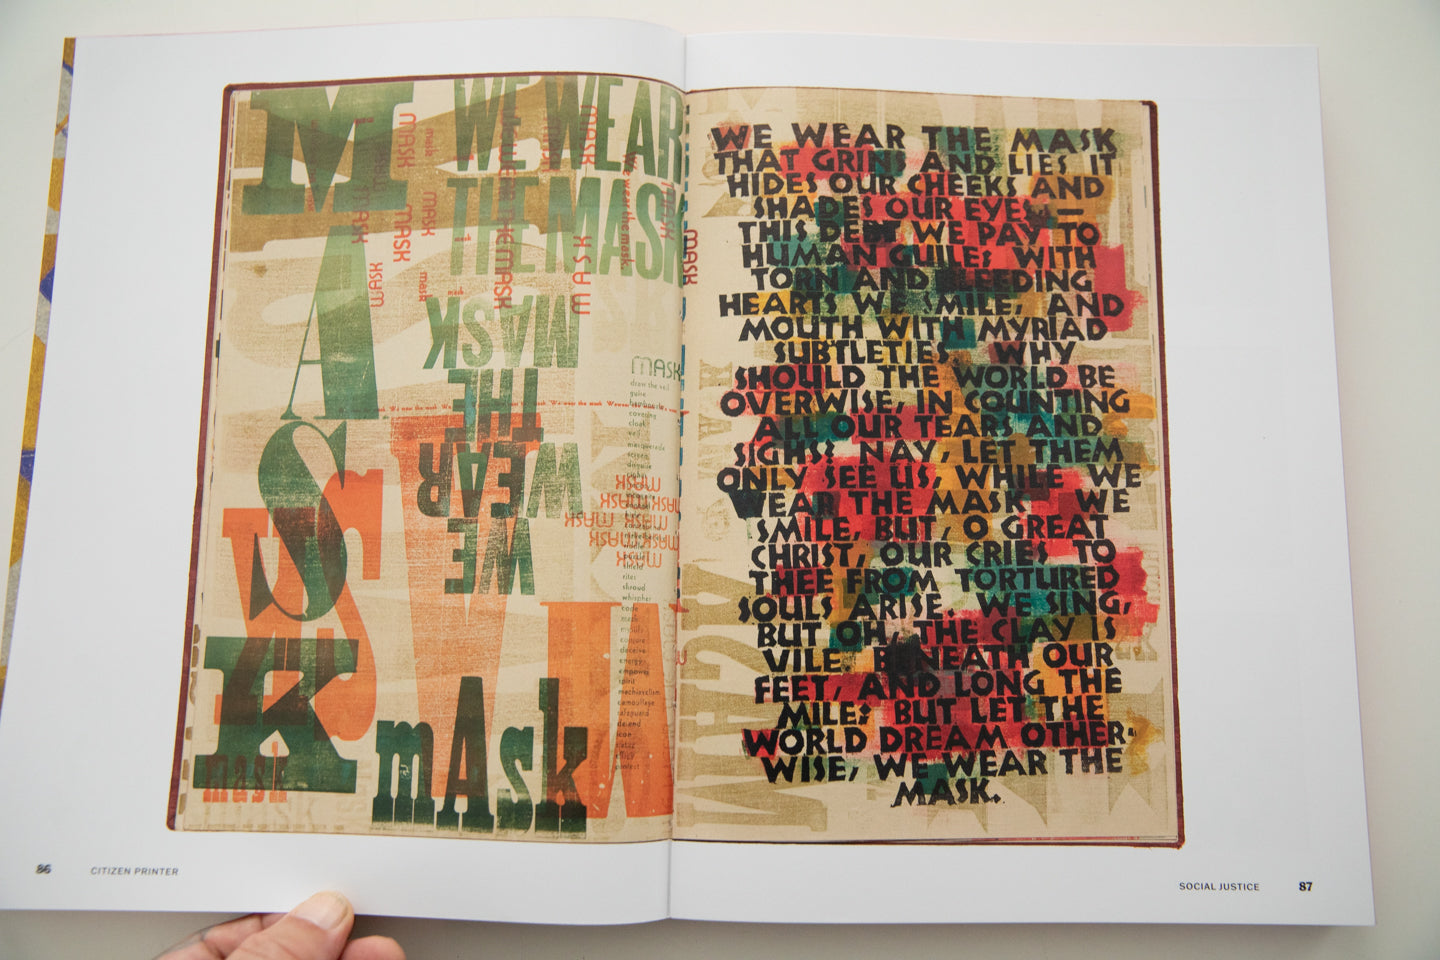 M
A
S
K
WE WEAR
THE MASK
MASK
THE
WEAR
WE
MASK
MASK
MASK
MASK
MASK
MASK
mask
mask
We wear the mask.
MASK
draw the veil
guise
covering
cloak
veil
masquerade
screen
disguise
shield
rites
shroud
whisper
code
mesh
conjure
deceive
energy
empower
spirit
camouflage
safeguard
defend
icon
mask
mAsk
WE WEAR THE MASK
THAT GRINS AND LIES IT
HIDES OUR CHEEKS AND
SHADES OUR EYES, —
THIS DEBT WE PAY TO
HUMAN GUILE; WITH
TORN AND BLEEDING
HEARTS WE SMILE, AND
MOUTH WITH MYRIAD
SUBTLETIES. WHY
SHOULD THE WORLD BE
OVERWISE, IN COUNTING
ALL OUR TEARS AND
SIGHS? NAY, LET THEM
ONLY SEE US, WHILE WE
WEAR THE MASK. WE
SMILE, BUT, O GREAT
CHRIST, OUR CRIES TO
THEE FROM TORTURED
SOULS ARISE. WE SING,
BUT OH, THE CLAY IS
VILE BENEATH OUR
FEET, AND LONG THE
MILE; BUT LET THE
WORLD DREAM OTHER-
WISE, WE WEAR THE
MASK.
86 CITIZEN PRINTER
SOCIAL JUSTICE 87